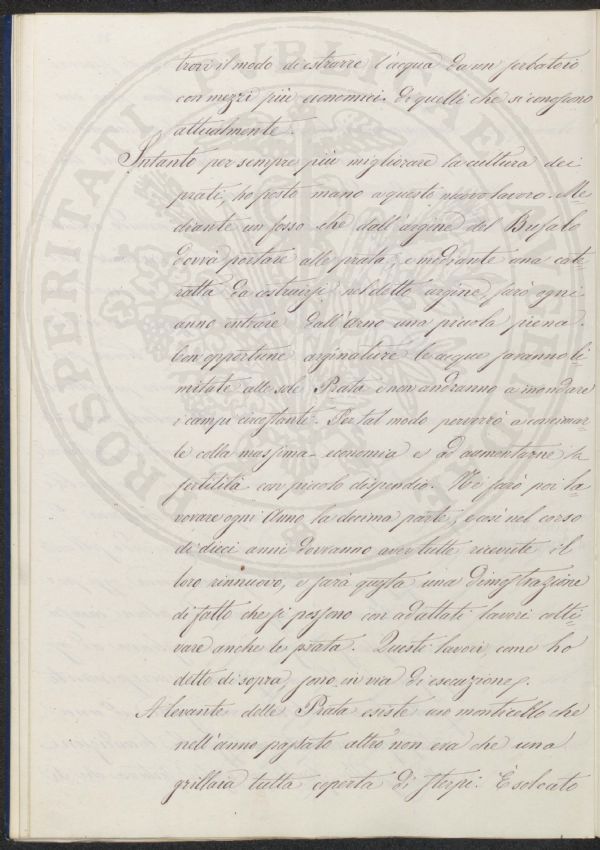 trovi il modo di estrarre l'acqua da un serbatoio
con mezzi più economici di quelli che si conoscono
attualmente.
Intanto per sempre più migliorare la cultura dei
prati, ho posto mano a questo nuovo lavoro. Me-
diante un fosso che dall'argine del Bufalo
dovrà portare alle prata, e mediante una cate-
ratta da costruirsi nel detto argine, farò ogni
anno entrare dall'Arno una piccola piena.
Con opportune arginature le acque saranno li-
mitate alle sole Prata e non andranno a inondare
i campi circostanti. Per tal modo perverrò a concimar-
le colla massima economia e ad aumentarne la
fertilità con piccolo dispendio. Ne farò poi la-
vorare ogni Anno la decima parte, e così nel corso
di dieci anni dovranno aver tutte ricevute il
loro rinnuovo, e sarà questa una dimostrazione
di fatto che si possono con adattati lavori colti-
vare anche le prata. Questi lavori, come ho
detto di sopra, sono in via di esecuzione.
A levante delle Prata esiste un monticello che
nell'anno passato altro non era che una
grillaia tutta coperta di sterpi. È solcato
PROSPERITATI PUBLICAE AUGENDAE